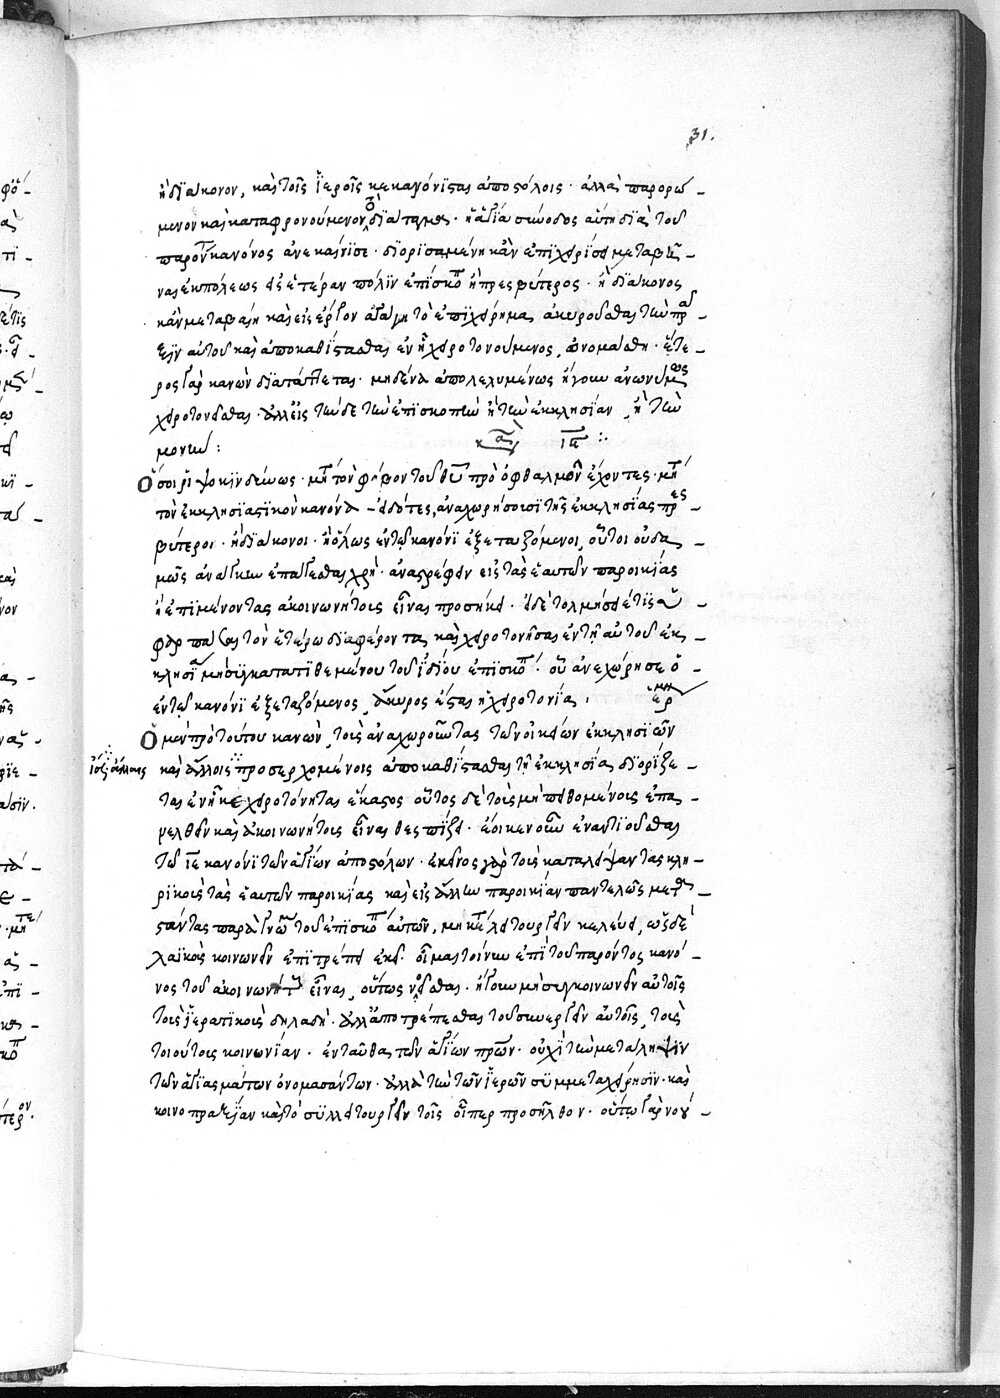 31.
ἢ διάκονον, καὶ τοῖς ἱεροῖς κεκανόνισται ἀποστόλοις· ἀλλὰ παρορώ-
μενον καὶ καταφρονούμενον τὸ διάταγμα· ἡ ἁγία σύνοδος αὕτη διὰ τοῦ
παρόντος κανόνος ἀνεκαίνισε· διορισαμένη κἂν ἐπιχειρήσει μεταβῆ-
ναι ἐκ πόλεως εἰς ἑτέραν πόλιν ἐπίσκοπος ἢ πρεσβύτερος· ἢ διάκονος
κἂν μεταβαίη καὶ εἰς ἔργον ἀγάγῃ τὸ ἐπιχείρημα, ἀκυροῦσθαι τὴν πρᾶ
ξιν αὐτοῦ καὶ ἀποκαθίστασθαι ἐν ᾗ χειροτονούμενος, ὠνομάσθη· ἕτε-
ρος γὰρ κανὼν διατάττεται· μηδένα ἀπολελυμένως ἤγουν ἀνωνύμως
χειροτονεῖσθαι· ἀλλ' εἰς τήνδε τὴν ἐπισκοπὴν ἢ τὴν ἐκκλησίαν, ἢ τὴν
μονήν:
κα ιϛ :.
Ὅσοι ῥιψοκινδύνως· μήτε τὸν φόβον τοῦ θυ πρὸ ὀφθαλμῶν ἔχοντες· μήτε
τὸν ἐκκλησιαστικὸν κανόνα εἰδότες, ἀναχωρήσοισι τῆς ἐκκλησίας πρες
βύτεροι· ἢ διάκονοι· ἢ ὅλως ἐν τῷ κανόνι ἐξεταζόμενοι, οὗτοι οὐδα-
μῶς ἀνάγκην ἐπάγεσθαι χρὴ· ἀναστρέφειν εἰς τὰς ἑαυτῶν παροικίας
ἢ ἐπιμένοντας ἀκοινωνήτους εἶναι προσήκει· εἰ δὲ τολμήσει τις ὑ-
φαρπάσαι τὸν ἑτέρῳ διαφέροντα, καὶ χειροτονῆσαι ἐν τῇ αὐτοῦ ἐκ-
κλησίᾳ μὴ συγκατατιθεμένου τοῦ ἰδίου ἐπισκόπου· οὗ ἀνεχώρησε ὁ-
ἐν τῷ κανόνι ἐξεταζόμενος, ἄκυρος ἔσται ἡ χειροτονία· ἑρμη
Ὁ μὲν πρὸ τούτου κανὼν, τοὺς ἀναχωροῦντας τῶν οἰκείων ἐκκλησιῶν
καὶ ἄλλοις προσερχομένους ἀποκαθίστασθαι τῇ ἐκκλησίᾳ διορίζε-
ται ἐν ᾗ κεχειροτόνηται ἕκαστος οὗτος δὲ τοὺς μὴ πειθομένοις ἐπα-
νελθεῖν καὶ ἀκοινωνήτους εἶναι θεσπίζει· ἔοικεν οὖν ἐναντιοῦσθαι
τῷ ιε κανόνι τῶν ἁγίων ἀποστόλων· ἐκεῖνος γὰρ τοὺς καταλείψαντας κλη-
ρικοὺς τὰς ἑαυτῶν παροικίας καὶ εἰς ἄλλην παροικίαν παντελῶς μετα-
στάντας παρὰ γνώμην τοῦ ἐπισκόπου αὐτῶν, μηκέτι λειτουργεῖν κελεύει, ὡς δὲ
λαϊκοὺς κοινωνεῖν ἐπιτρέπει ἐκεῖ· οἶμαι τοίνυν ἐπὶ τοῦ παρόντος κανό-
νος τοῦ ἀκοινωνήτους εἶναι, οὕτως νοεῖσθαι· ἤγουν μὴ συγκοινωνεῖν αὐτοῖς
τοῖς ἱερατικοῖς δηλαδή· ἀλλ' ἀποτρέπεσθαι τοῦ συνεργεῖν αὐτοῖς, τοὺς
τοιούτοις κοινωνίαν· ἐνταῦθα τῶν ἁγίων πρων· οὐχὶ τὴν μετάληψιν
τῶν ἁγιασμάτων ὀνομασάντων· ἀλλὰ τὴν τῶν ἱερῶν συμμεταχείρησιν· καὶ
κοινοπραξίαν καὶ τὸ συλλειτουργεῖν τοῖς οἷσπερ προσῆλθον· οὕτω γὰρ νού-